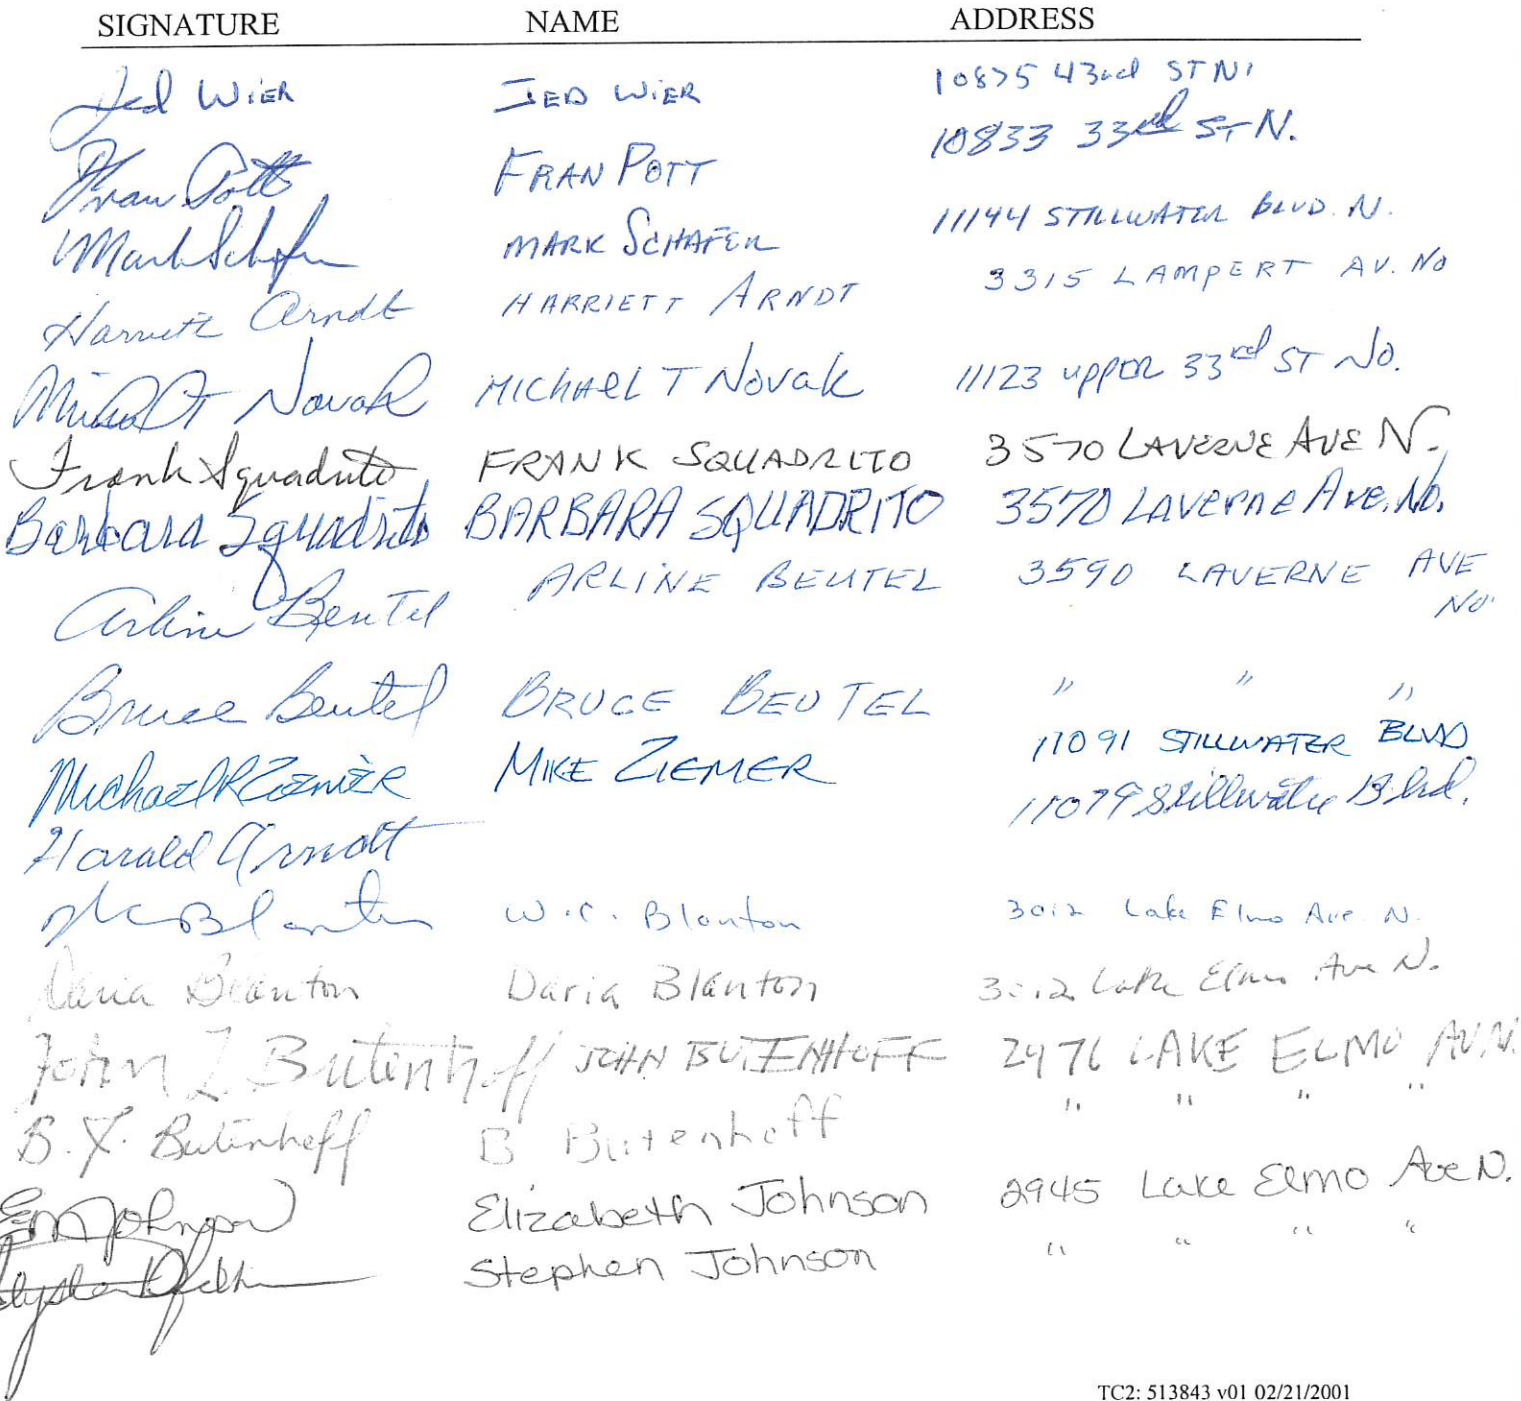 SIGNATURE NAME ADDRESS
Jed Wier JED WIER 10875 43rd ST N.
Fran Pott FRAN POTT 10833 33rd ST N.
Mark Schafer MARK SCHAFER 11144 STILLWATER BLVD. N.
Harriett Arndt HARRIETT ARNDT 3315 LAMPERT AV. NO
Michael T Novak MICHAEL T NOVAK 11123 upper 33rd ST NO.
Frank Squadrito FRANK SQUADRITO 3570 LAVERNE AVE N.
Barbara Squadrito BARBARA SQUADRITO 3570 LAVERNE Ave. No.
Arline Beutel ARLINE BEUTEL 3590 LAVERNE AVE
NO.
Bruce Beutel BRUCE BEUTEL " " "
Michael R Ziemer MIKE ZIEMER 11091 STILLWATER BLVD
Harald Arndt 11079 Stillwater Blvd.
W C Blanton W.C. Blanton 3012 Lake Elmo Ave. N.
Daria Blanton Daria Blanton 3012 Lake Elmo Ave N.
John L. Butenhoff JOHN BUTENHOFF 2976 LAKE ELMO AV. N.
B. Butenhoff B Butenhoff " " " "
Johnson Elizabeth Johnson 2945 Lake Elmo Ave N.
Stephen Johnson " " " "
TC2: 513843 v01 02/21/2001